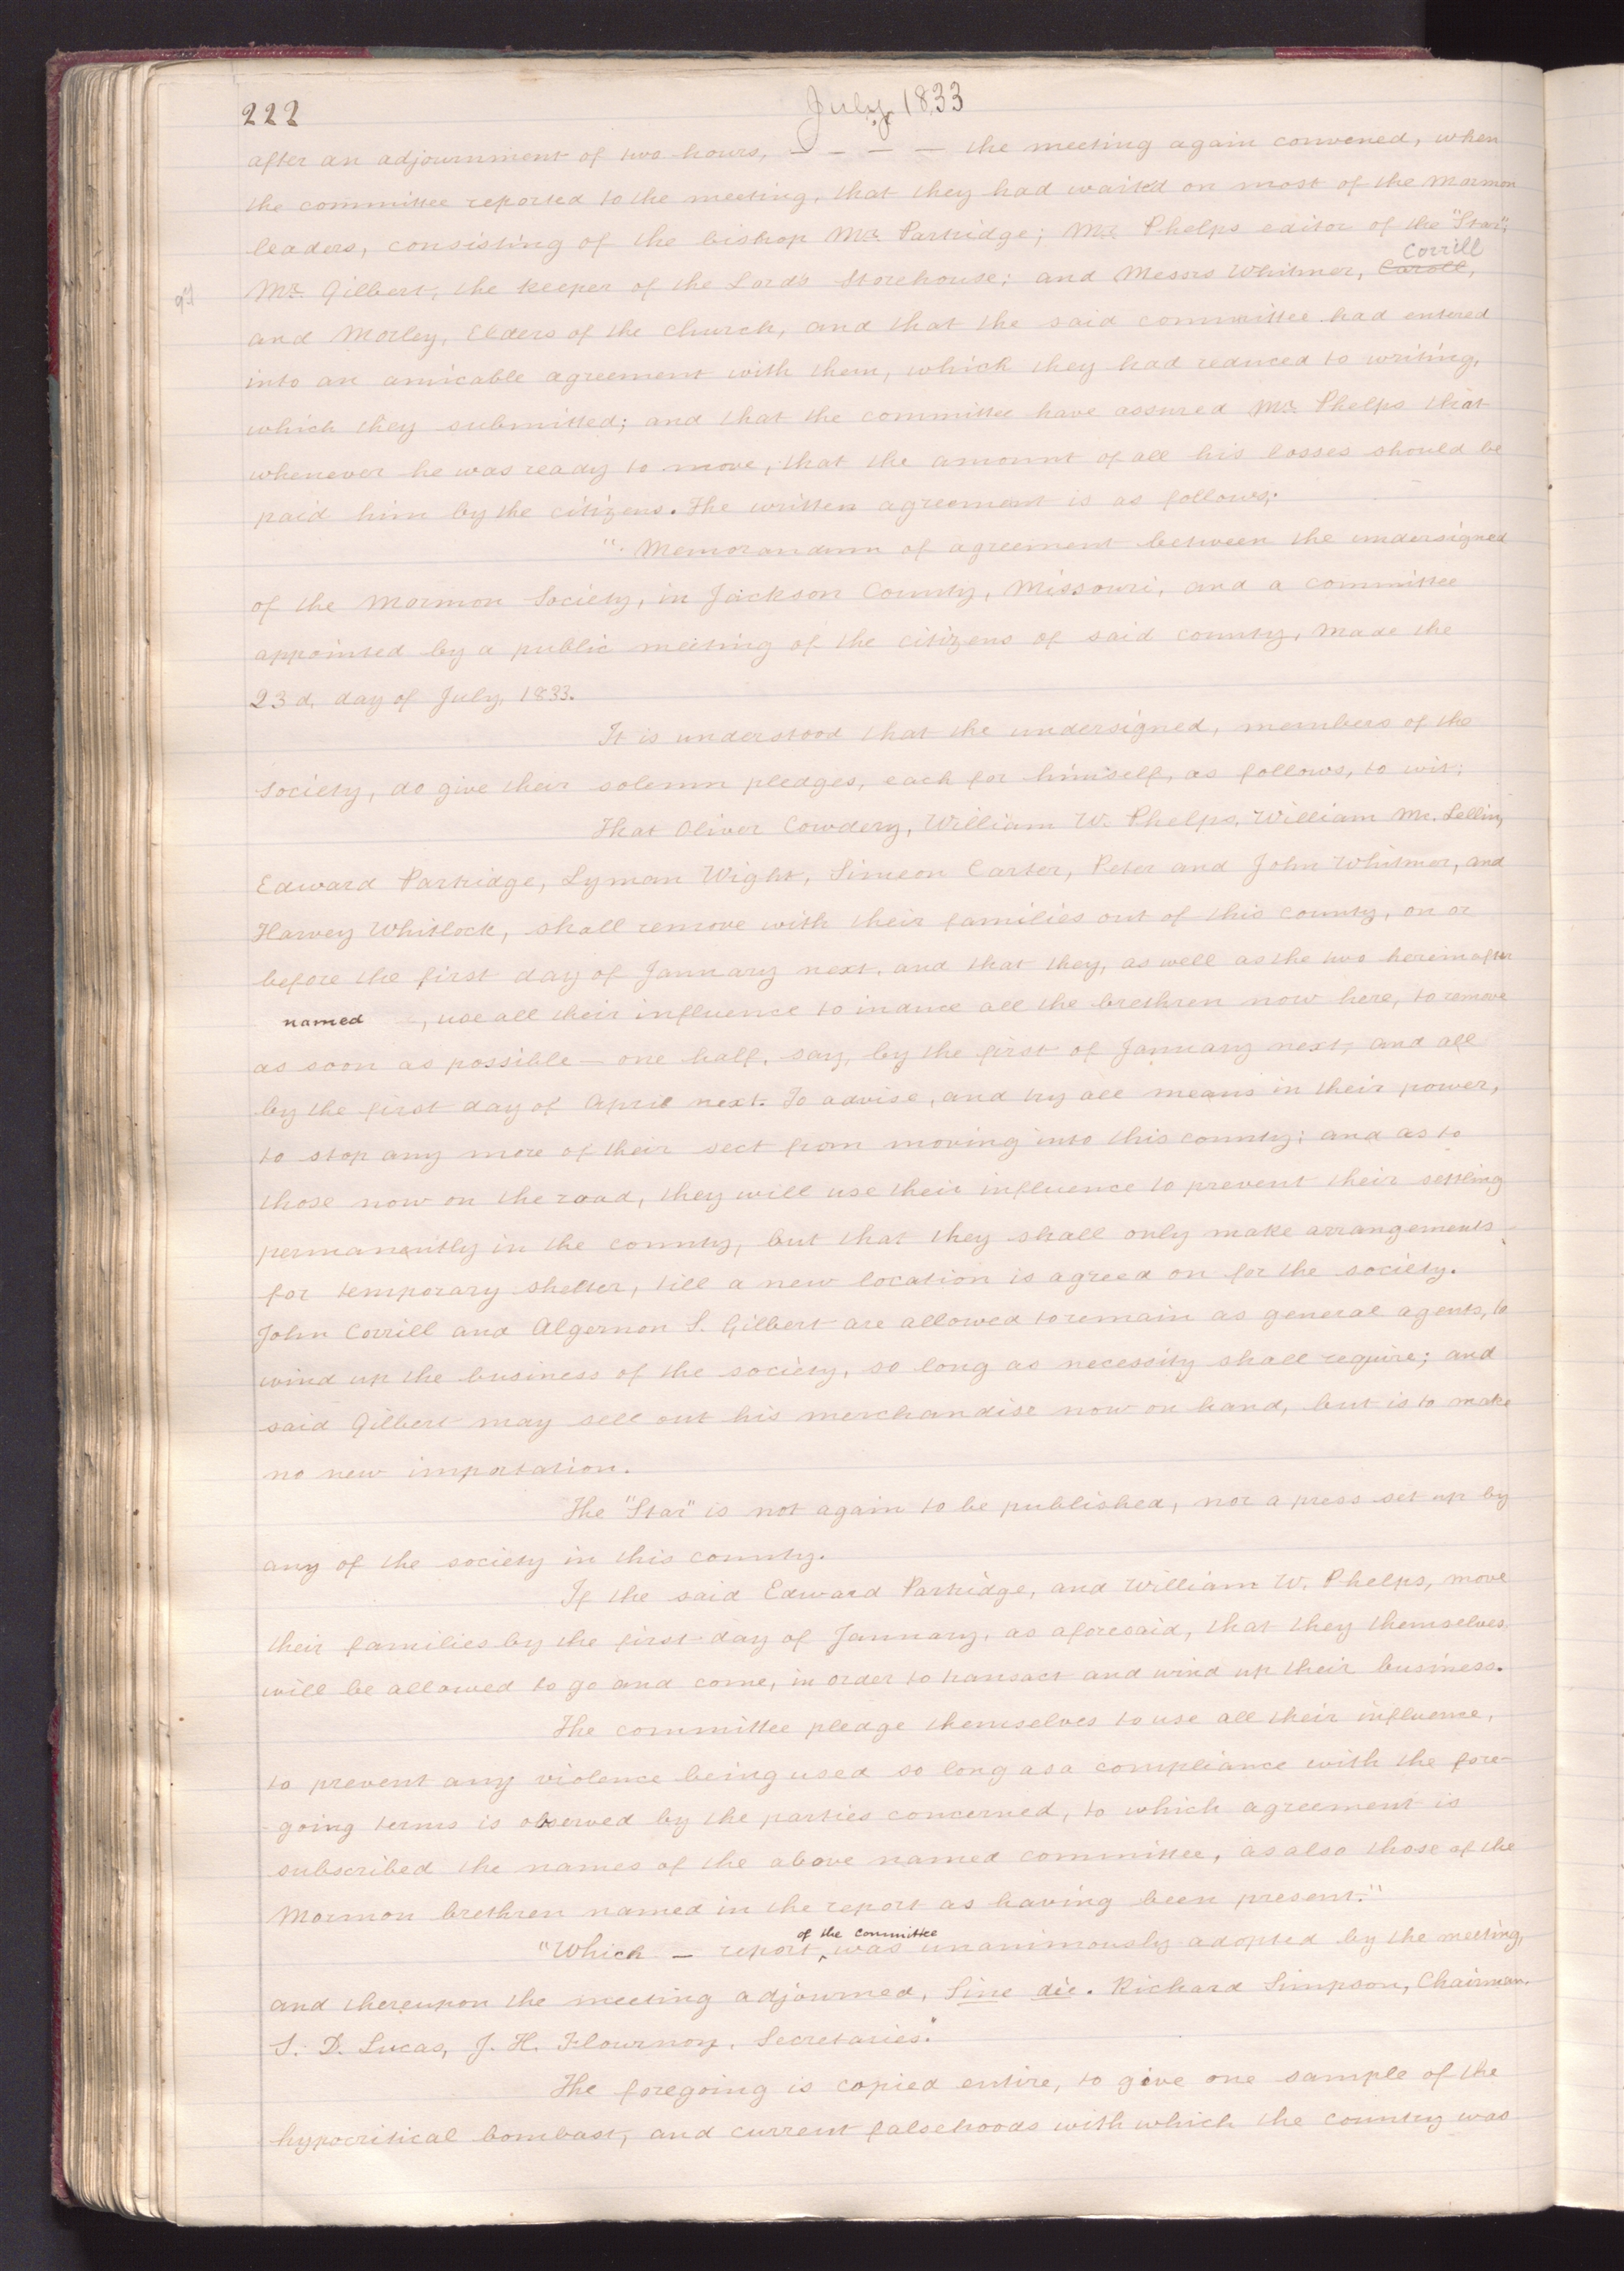 222
July, 1833
after an adjournment of two hours, — — — — the meeting again convened, when
the committee reported to the meeting, that they had waited on most of the Mormon
leaders, consisting of the bishop Mr. Partridge; Mr. Phelps editor of the "Star";
Corrill
Mr. Gilbert, the keeper of the Lord's Storehouse; and Messrs Whitmer, Caroll,
and Morley, Elders of the church, and that the said committee had entered
into an amicable agreement with them, which they had reduced to writing,
which they submitted; and that the committee have assured Mr. Phelps that
whenever he was ready to move, that the amount of all his losses should be
paid him by the citizens. The written agreement is as follows;
"Memorandum of agreement between the undersigned
of the Mormon Society, in Jackson County, Missouri, and a committee
appointed by a public meeting of the citizens of said county, made the
23d, day of July, 1833.
It is understood that the undersigned, members of the
society, do give their solemn pledges, each for himself, as follows, to wit;
That Oliver Cowdery, William W. Phelps, William Mc. Lellin,
Edward Partridge, Lyman Wight, Simeon Carter, Peter and John Whitmer, and
Harvey Whitlock, shall remove with their families out of this county, on or
before the first day of January next, and that they, as well as the two hereinafter
named , use all their influence to induce all the brethren now here, to remove
as soon as possible — one half, say, by the first of January next, and all
by the first day of April next. To advise, and try all means in their power,
to stop any more of their sect from moving into this county; and as to
those now on the road, they will use their influence to prevent their settling
permanently in the county, but that they shall only make arrangements
for temporary shelter, till a new location is agreed on for the society.
John Corrill and Algernon S. Gilbert are allowed to remain as general agents, to
wind up the business of the society, so long as necessity shall require; and
said Gilbert may sell out his merchandise now on hand, but is to make
no new importation.
The "Star" is not again to be published, nor a press set up by
any of the society in this county.
If the said Edward Partridge, and William W. Phelps, move
their families by the first day of January, as aforesaid, that they themselves
will be allowed to go and come, in order to transact and wind up their business.
The committee pledge themselves to use all their influence,
to prevent any violence being used so long as a compliance with the fore-
going terms is observed by the parties concerned, to which agreement is
subscribed the names of the above named committee, as also those of the
Mormon brethren named in the report as having been present."
of the committee
"Which — report ‸ was unanimously adopted by the meeting,
and thereupon the meeting adjourned, Sine die. Richard Simpson, Chairman.
S. D. Lucas, J. H. Flournoy, Secretaries."
The foregoing is copied entire, to give one sample of the
hypocritical bombast, and current falsehoods with which the country was